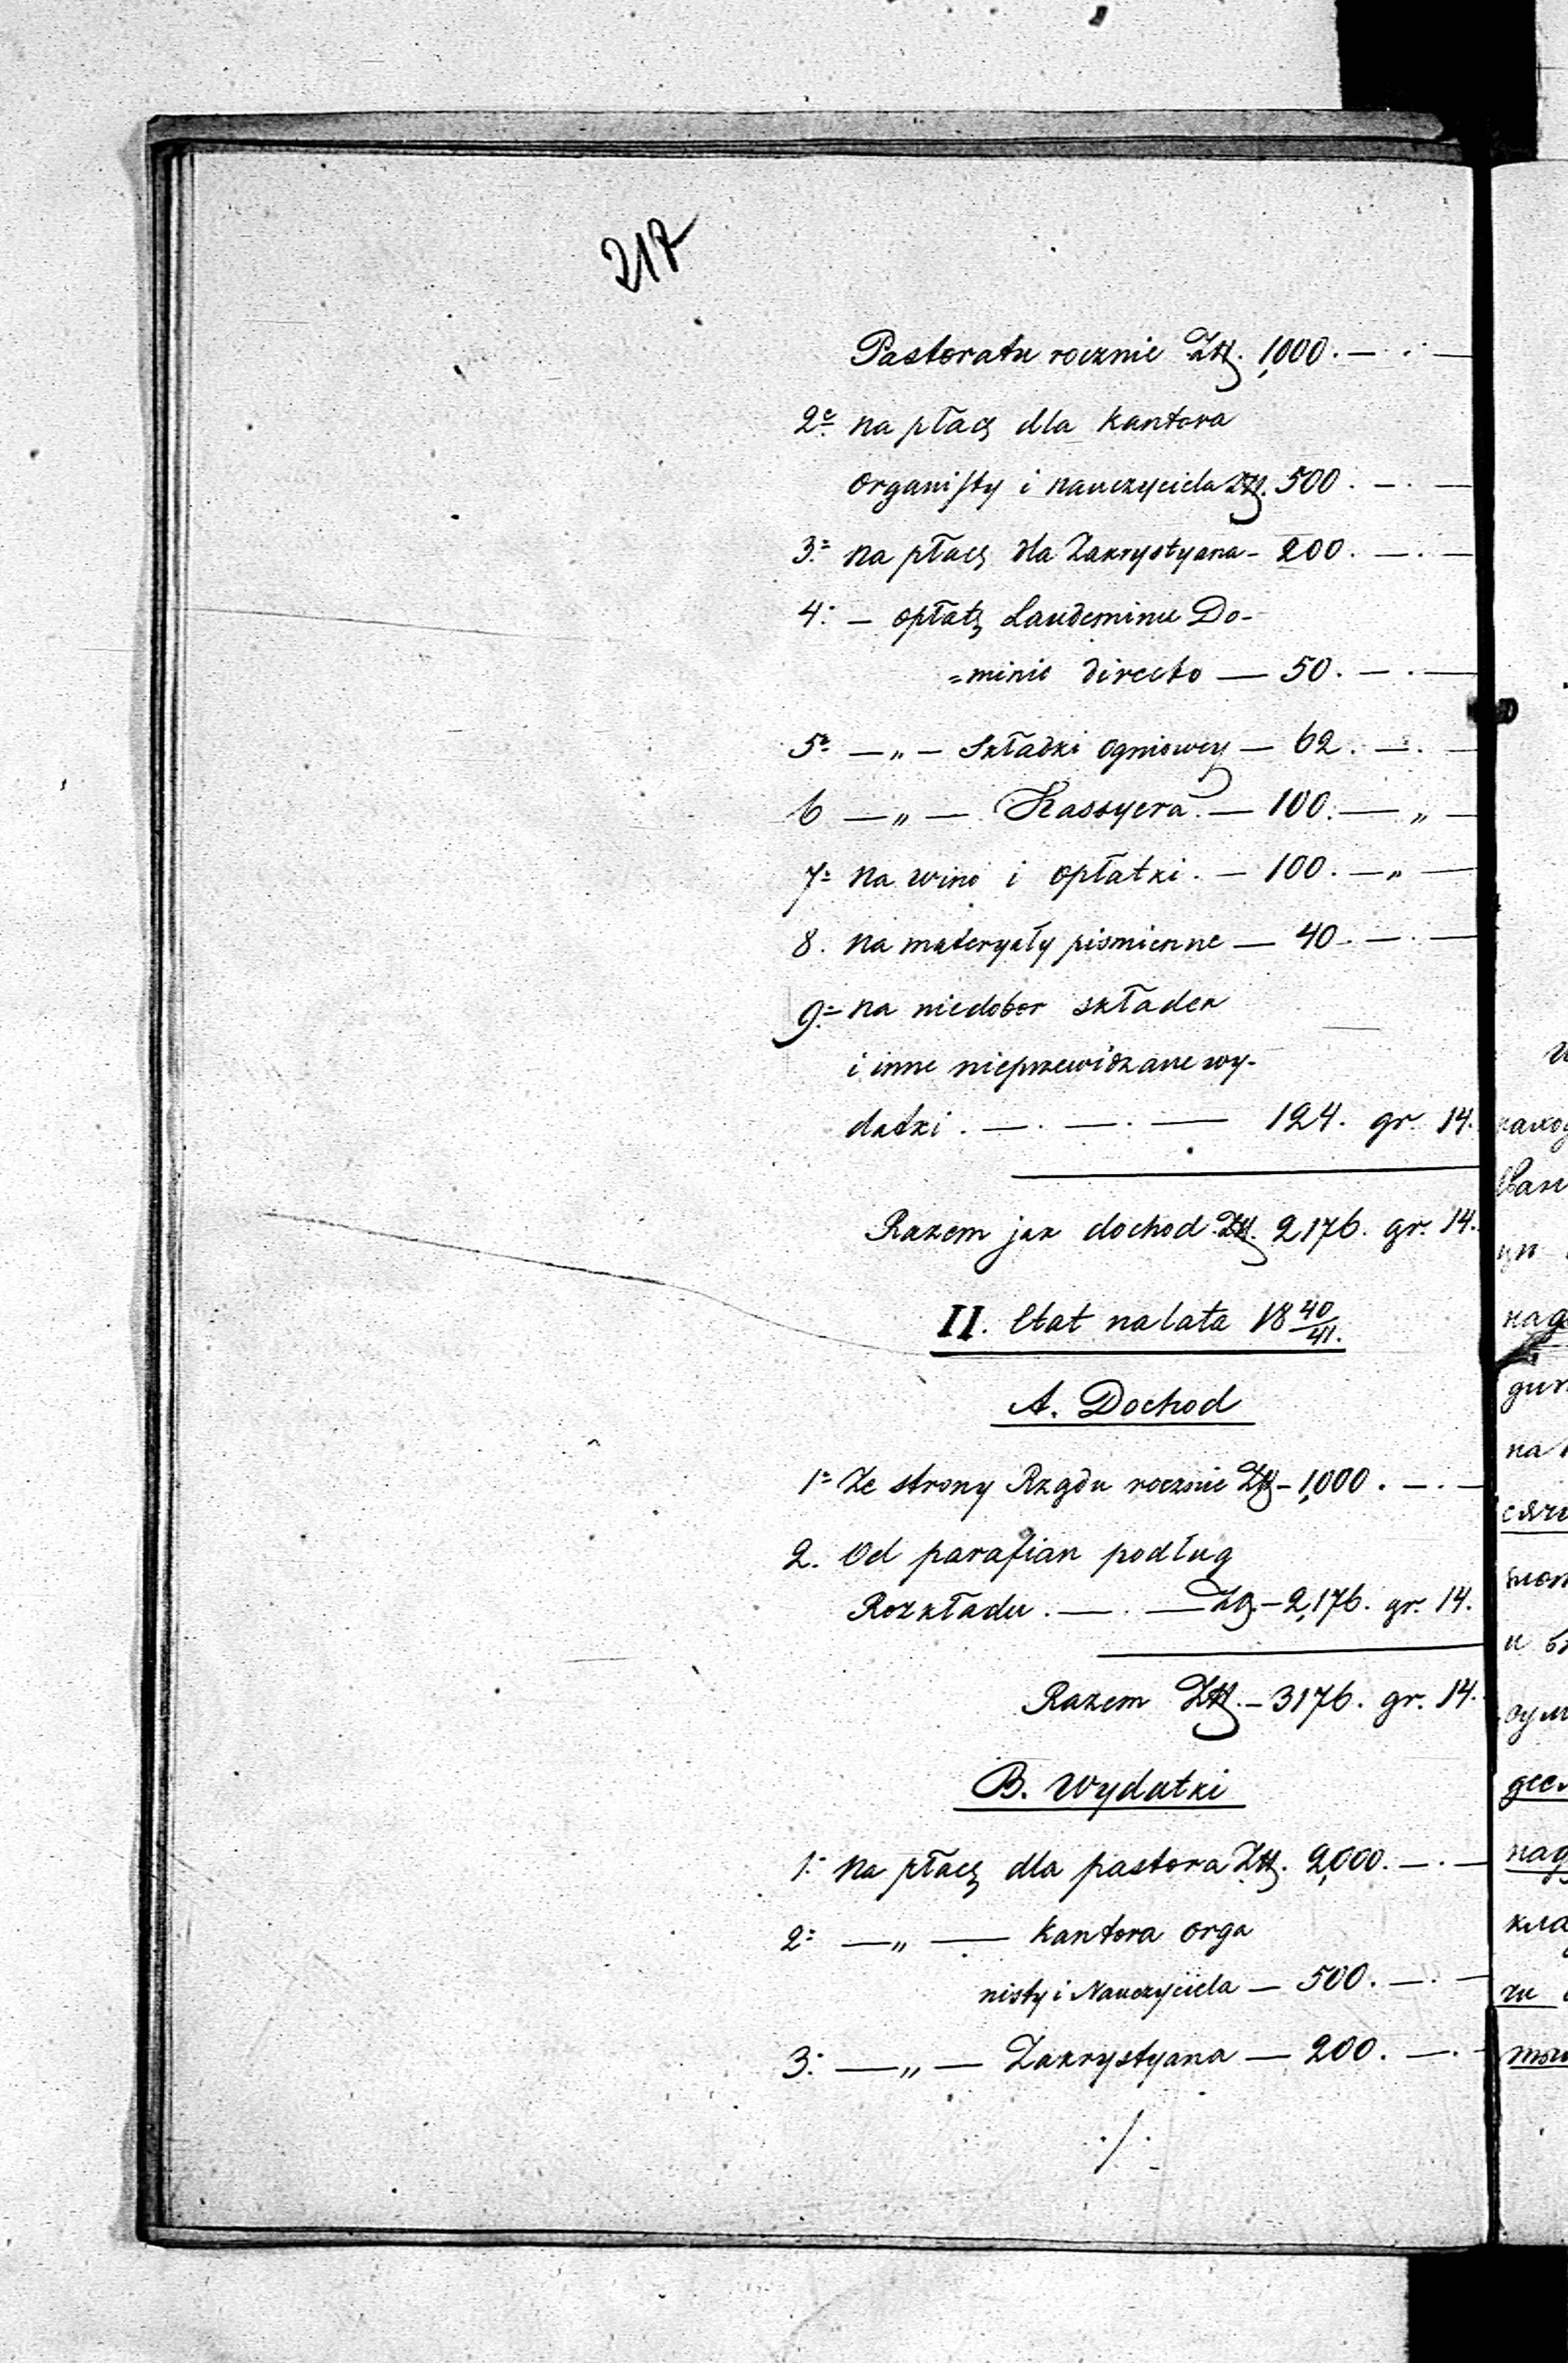 217
Pastoratu rocznie Złł. 1,000. — . —
2e na płacę dla kantora
organisty i nauczyciela Złł. 500. — . —
3= na płacę dla Zakrystyana - 200. — . —
4: — opłatę Laudemium Do-
=minio directo — 50. — . —
5= — „ — Składki ogniowey — 62. — . —
6 — „ — Kassyera. — 100. — „ —
7= na wino i opłatki. — 100. — „ —
8. na materyały pismienne — 40. — . —
9= na niedobor składek
i inne nieprzewidzane wy-
datki . — . — . — 124. gr. 14.
Razem jak dochod Złł. 2176. gr. 14.
II. Etat na lata 18 40/41.
A. Dochod
1= Ze strony Rządu rocznie Złł - 1,000. — . —
2. Od parafian podług
Rozkładu. — . — Zł. - 2,176. gr. 14.
Razem Złł. - 3176. gr. 14.
B. Wydatki
1: Na płacę dla pastora Złł. 2,000. — . —
2= — „ — kantora orga
nisty i Nauczyciela — 500. — . —
3: — „ — Zakrystyana — 200. — . —
./.